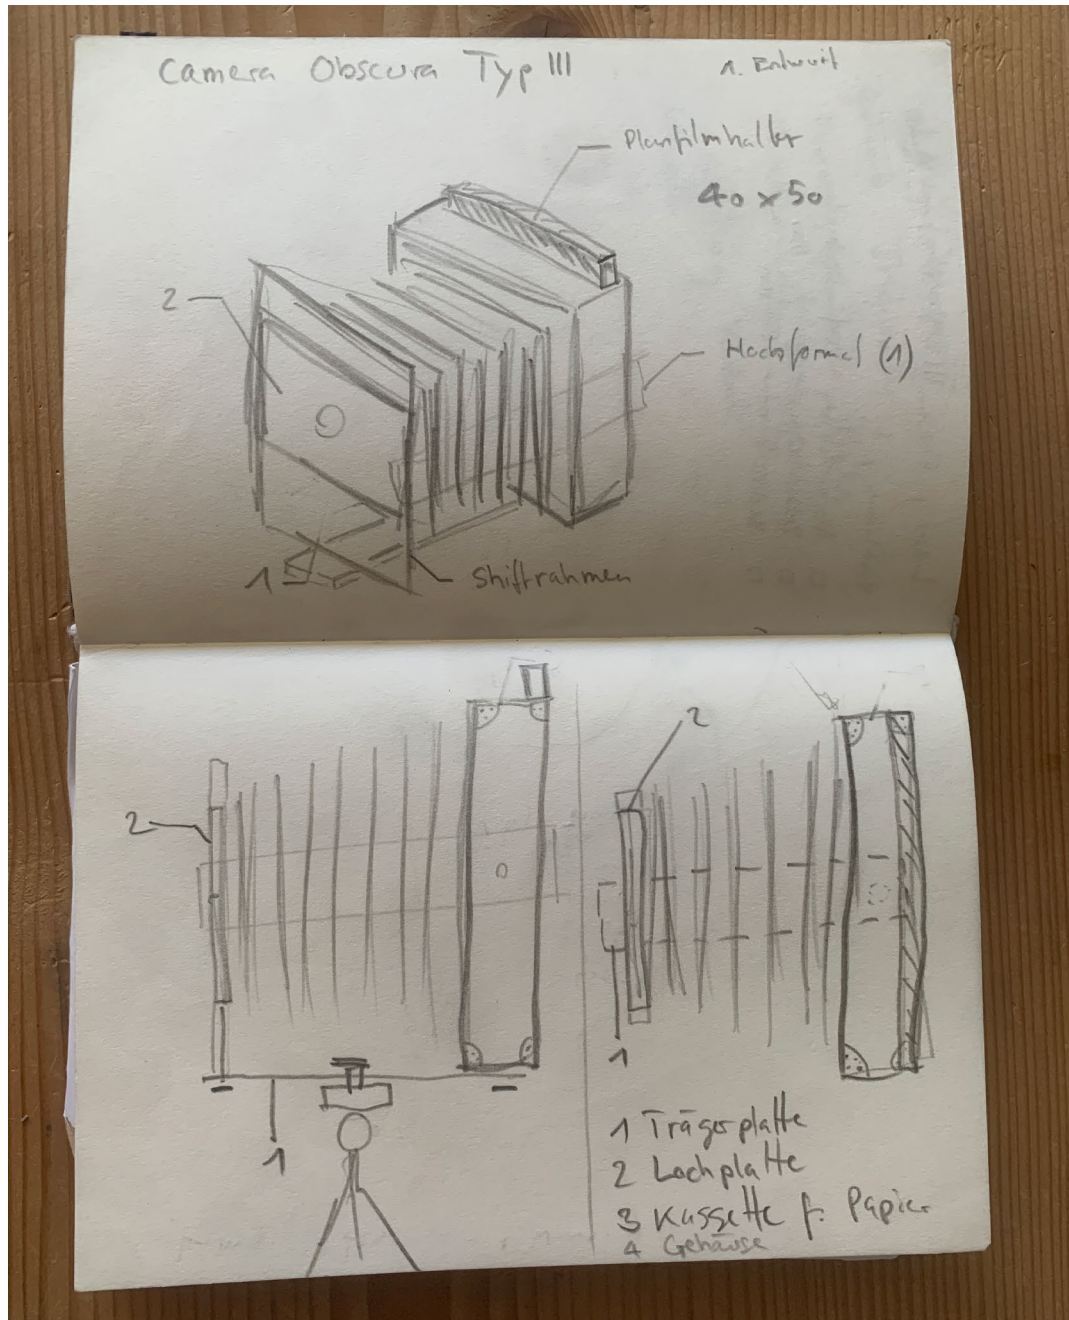 Camera Obscura Typ III
1. Entwurf
Planfilmhalter
40 x 50
2
Hochformat (1)
1
Shiftrahmen
2
2
1
1
1 Trägerplatte
2 Lochplatte
3 Kassette f. Papier
4 Gehäuse